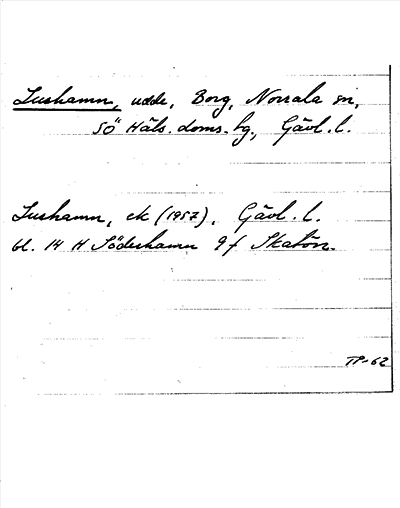 Lushamn, udde, Borg, Norrala sn,
SÖ Häls. doms. hg., Gävl. l.
Lushamn, ek (1957), Gävl. l.
bl. 14 H Söderhamn 9 f Skatön.
TP-62